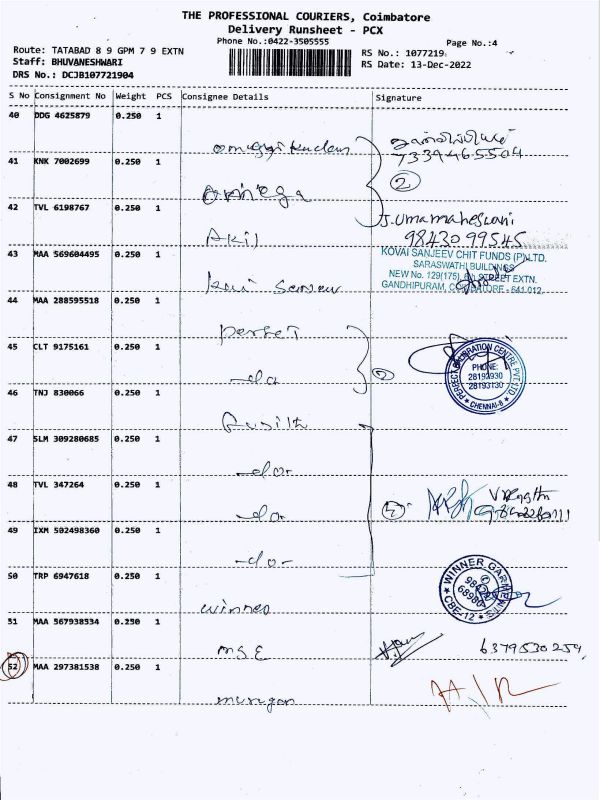 THE PROFESSIONAL COURIERS, Coimbatore
Delivery Runsheet - PCX
Phone No.:0422-3505555
Page No.:4
Route: TATABAD 8 9 GPM 7 9 EXTN
Staff: BHUVANESHWARI
DRS No.: DCJB107721904
RS No.: 1077219
RS Date: 13-Dec-2022
S No Consignment No Weight PCS Consignee Details Signature
40 DDG 4625879 0.250 1
7339465504
41 KNK 7002699 0.250 1
omega
2
42 TVL 6198767 0.250 1
Akil
J. Umamaheswari
9843099545
43 MAA 569604495 0.250 1
KOVAI SANJEEV CHIT FUNDS (P) LTD.
SARASWATHI BUILDINGS
NEW No. 129(175), 6th STREET EXTN.
GANDHIPURAM, COIMBATORE - 641 012.
44 MAA 288595518 0.250 1
perfect
45 CLT 9175161 0.250 1
-do
2
PERFECT VIBRATION CENTRE PVT LTD
PHONE:
28193930
28193130
CHENNAI-8
46 TNJ 830066 0.250 1
47 SLM 309280685 0.250 1
-do-
48 TVL 347264 0.250 1
-do-
49 IXM 502498360 0.250 1
-do-
50 TRP 6947618 0.250 1
winner
WINNER GARMENTS
CBE-12
51 MAA 567938534 0.250 1
MSE
6379530259
52 MAA 297381538 0.250 1
murugan